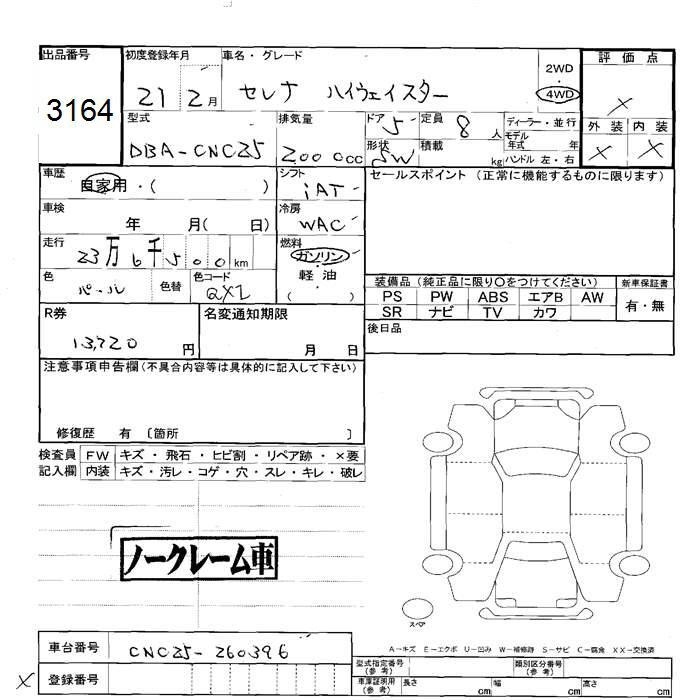 出品番号
3164
初度登録年月
21 2月
車名・グレード
セレナ ハイウェイスター
2WD
4WD
評価点
×
外装 内装
× ×
型式
DBA-CNC25
排気量
2000cc
ドア 5
定員 8人
ディーラー・並行
モデル年式 年
形状 SW
積載 kg
ハンドル 左・右
車歴
自家用・( )
シフト
iAT
セールスポイント(正常に機能するものに限ります)
車検
年 月( 日)
冷房
WAC
走行
23万6千500km
燃料
ガソリン
軽油
( )
色
パール
色替
色コード
QX1
装備品(純正品に限り○をつけてください)
新車保証書
PS PW ABS エアB AW
SR ナビ TV カワ
有・無
R券
13,720円
名変通知期限
月 日
後日品
注意事項申告欄(不具合内容等は具体的に記入して下さい)
修復歴 有 〔箇所 〕
検査員記入欄
FW キズ・飛石・ヒビ割・リペア跡・×要
内装 キズ・汚レ・コゲ・穴・スレ・キレ・破レ
ノークレーム車
スペア
A-キズ E-エクボ U-凹み W-補修跡 S-サビ C-腐食 XX-交換済
車台番号
CNC25-260396
× 登録番号
型式指定番号(参考)
類別区分番号(参考)
車庫証明用(参考)
長さ cm 幅 cm 高さ cm